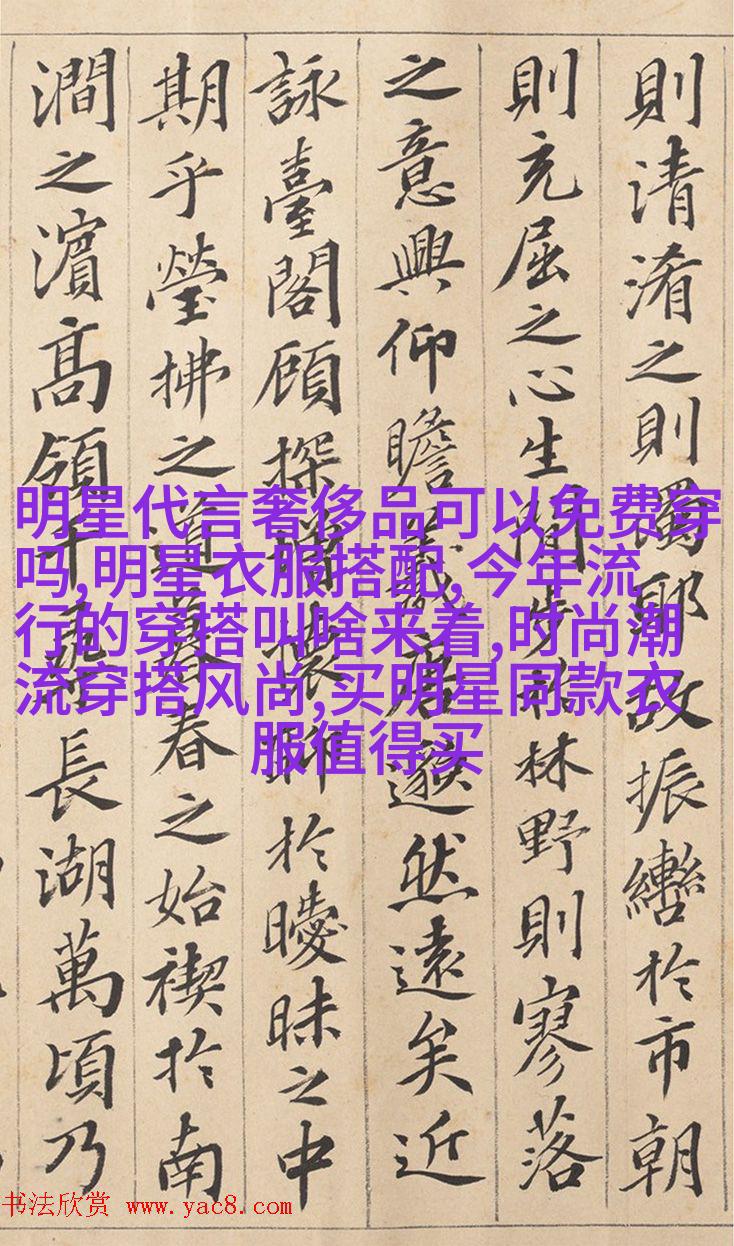 則清淆之則濁耶故振轡於市朝
則充屈之心生閒步於林野則寥落
之意興仰瞻羲唐邈然遠矣近
詠臺閣顧探增懷聊於曖昧之中
期乎瑩拂之道暮春之始禊於南
澗之濱高領千尋長湖萬頃乃
明星代言奢侈品可以免费穿
吗,明星衣服搭配,今年流
行的穿搭叫啥来着,时尚潮
流穿搭风尚,买明星同款衣
服值得买
书法欣赏 www.yac8.com